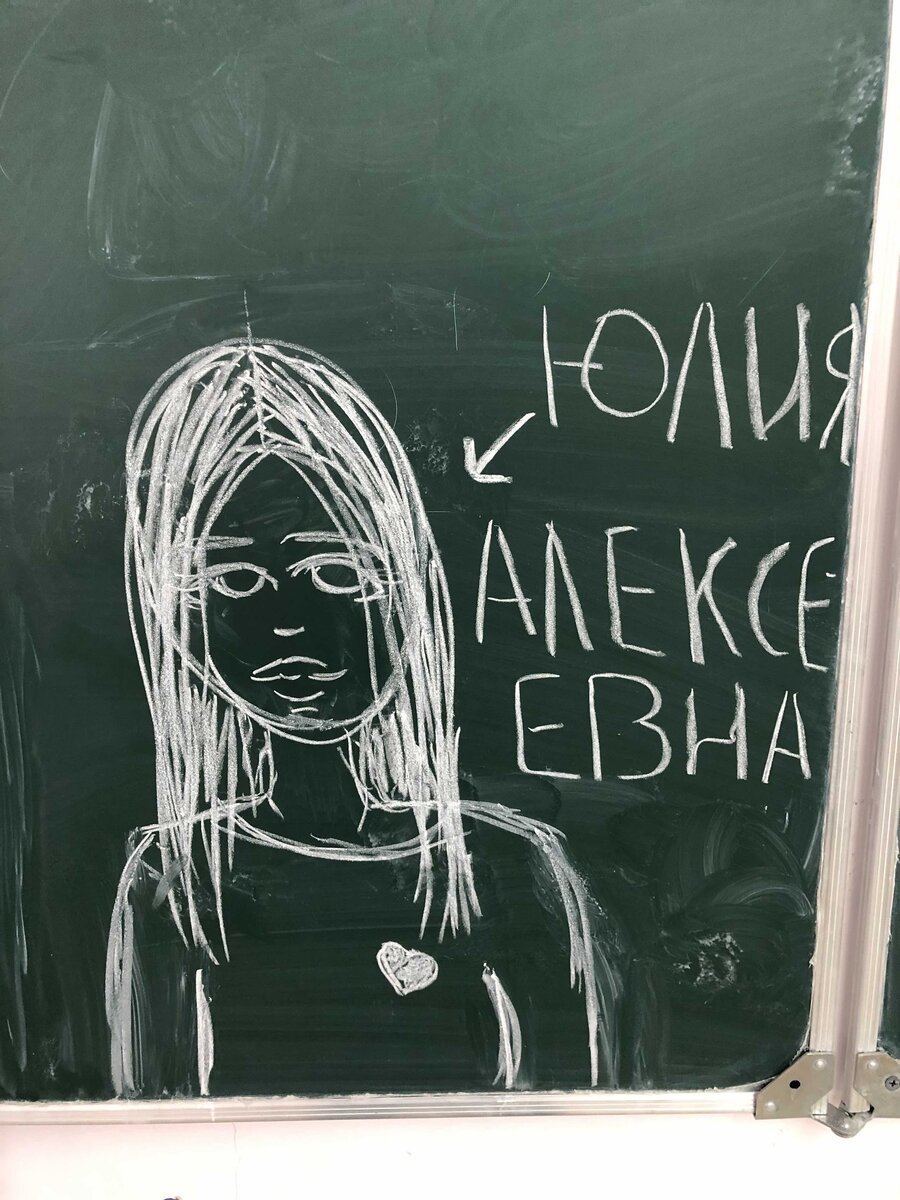 ЮЛИЯ
АЛЕКСЕ
ЕВНА